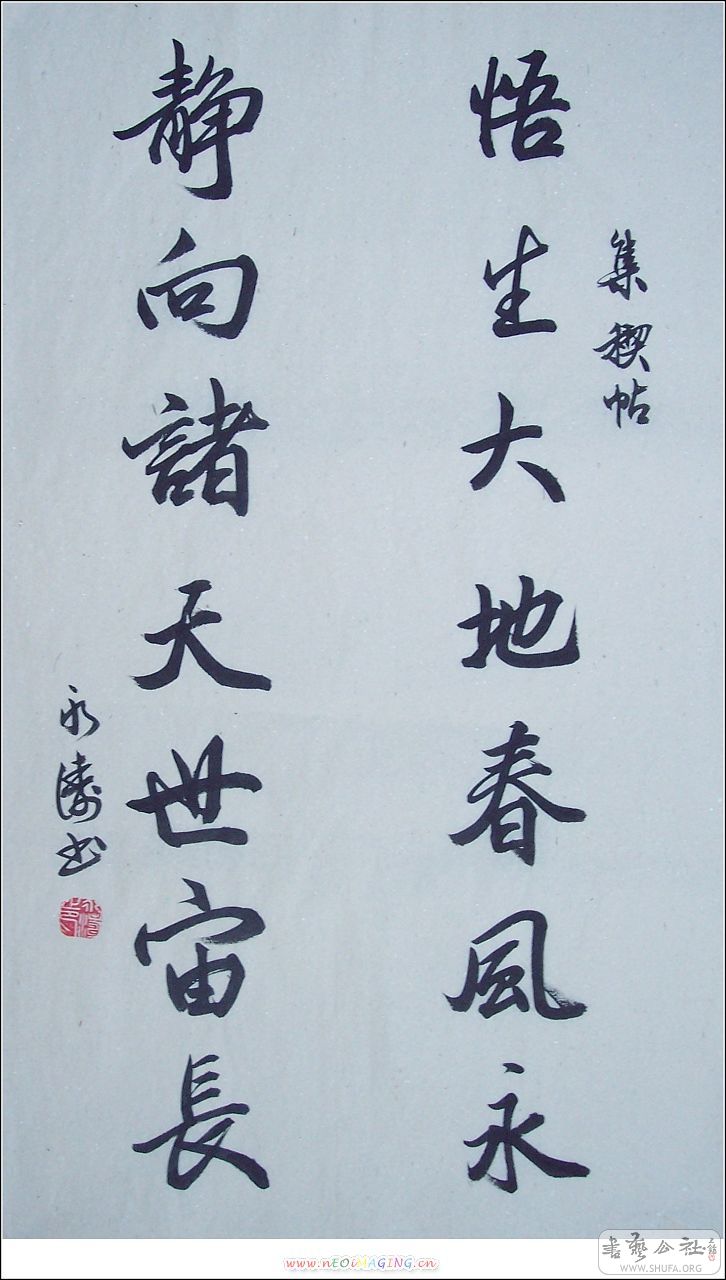 集禊帖
悟生大地春風永
靜向諸天世宙長
永濤书
書藝公社
www.SHUFA.ORG
www.nEOiMAGING.cn